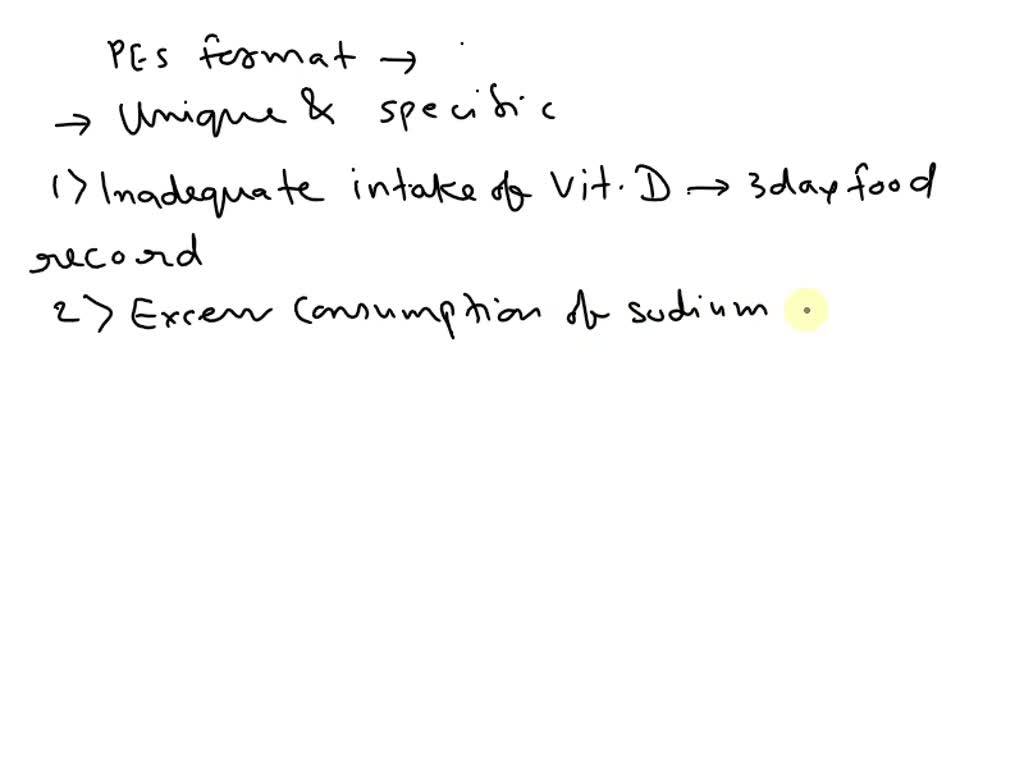 PES format →
→ Unique & specific
1) Inadequate intake of Vit. D → 3 day food
record
2) Excess Consumption of sodium